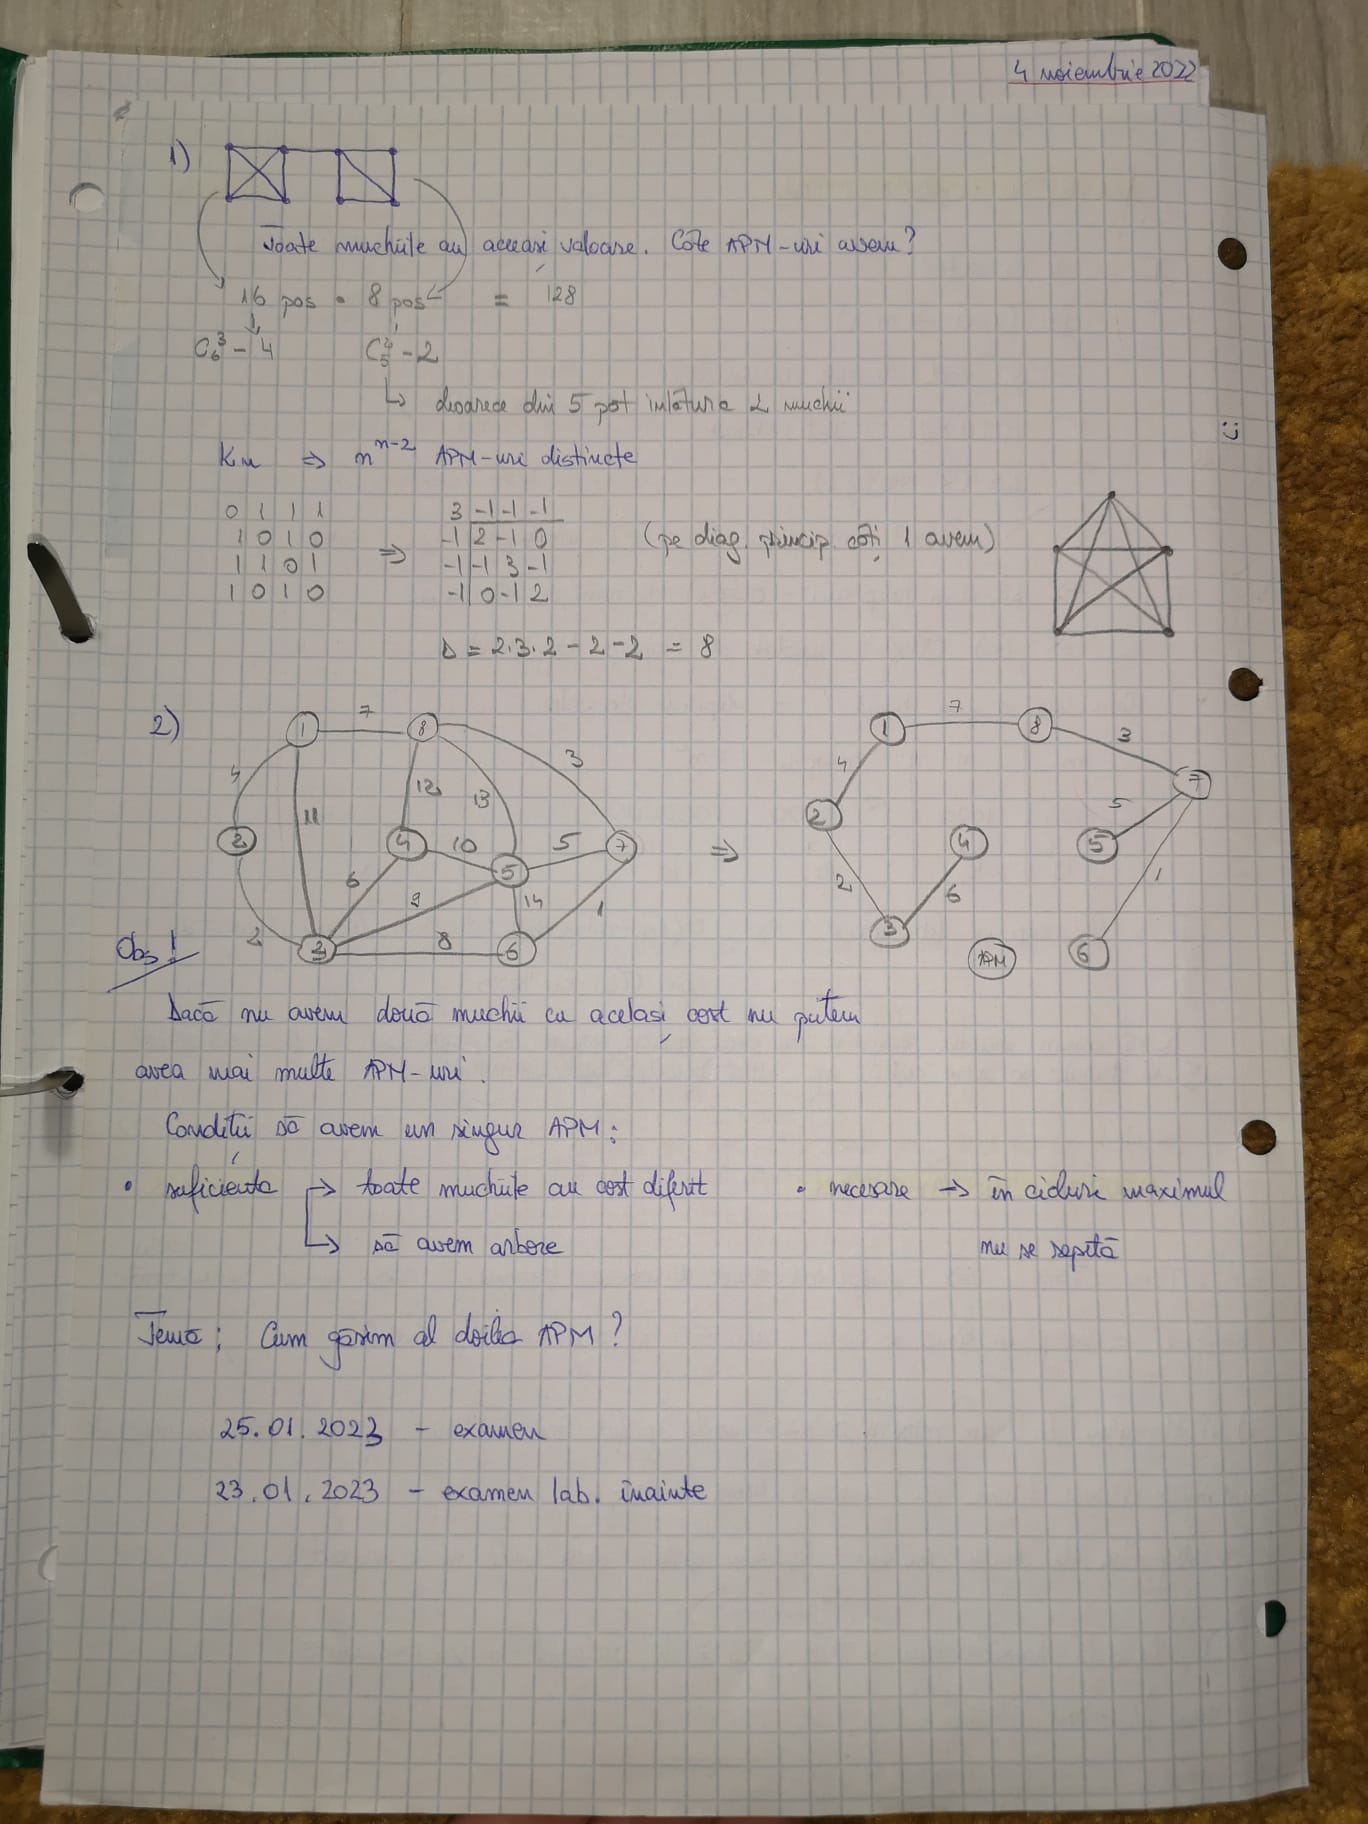 4 noiembrie 2022
1)
Toate muchiile au aceeași valoare. Câte APM-uri avem?
16 pos • 8 pos = 128
C₆³ - 4 C₅² - 2
↳ deoarece din 5 pot înlătura 2 muchii
:)
Kn ⇒ n^(n-2) APM-uri distincte
0 1 1 1 3 -1 -1 -1
1 0 1 0 ⇒ -1 2 -1 0 (pe diag. princip. câți 1 avem)
1 1 0 1 -1 -1 3 -1
1 0 1 0 -1 0 -1 2
Δ = 2·3·2 - 2 - 2 = 8
2)
1 7 8 4 11 12 13 3 2 4 10 5 5 7 6 9 14 1 2 3 8 6
⇒
1 7 8 3 4 7 2 4 5 5 2 6 1 3 APM 6
Obs!
Dacă nu avem două muchii cu același cost nu putem
avea mai multe APM-uri.
Condiții să avem un singur APM:
• suficienta → toate muchiile au cost diferit • necesare → în cicluri maximul
↳ să avem arbore nu se repetă
Temă: Cum găsim al doilea APM?
25.01.2023 - examen
23.01.2023 - examen lab. înainte